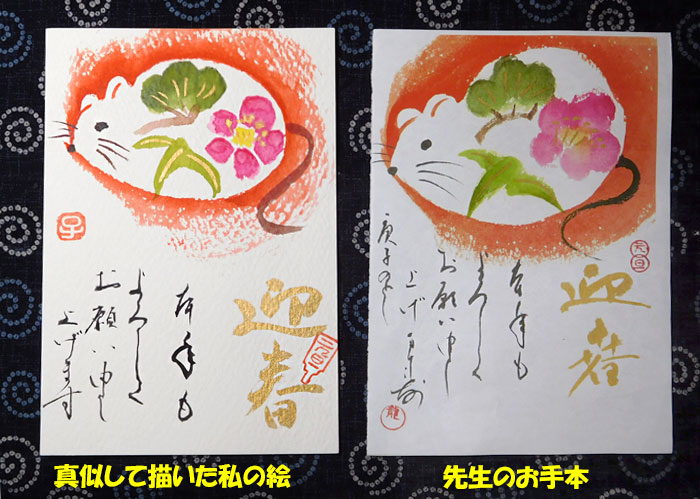 迎春
本年も
よろしく
お願い申し
上げます
子
迎春
本年も
よろしく
お願い申し
上げます
庚子
元旦
龍
真似して描いた私の絵
先生のお手本